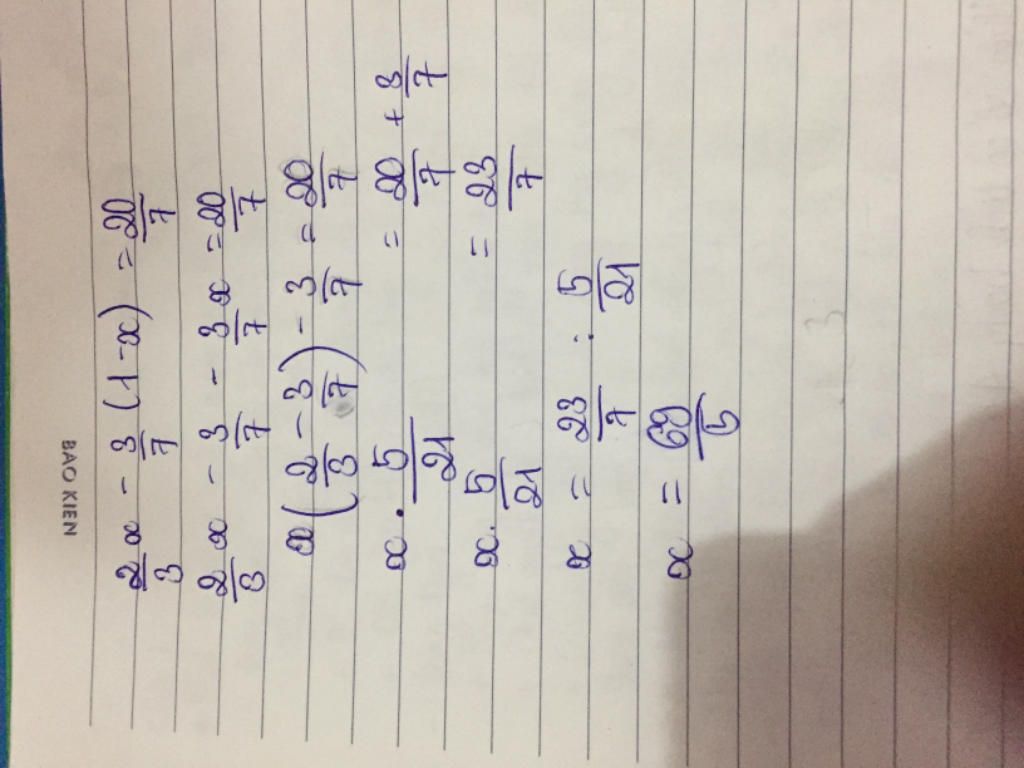 BAO KIEN
2/3 x - 3/7 (1-x) = 20/7
2/3 x - 3/7 - 3/7 x = 20/7
x (2/3 - 3/7) - 3/7 = 20/7
x . 5/21 = 20/7 + 3/7
x . 5/21 = 23/7
x = 23/7 : 5/21
x = 69/5